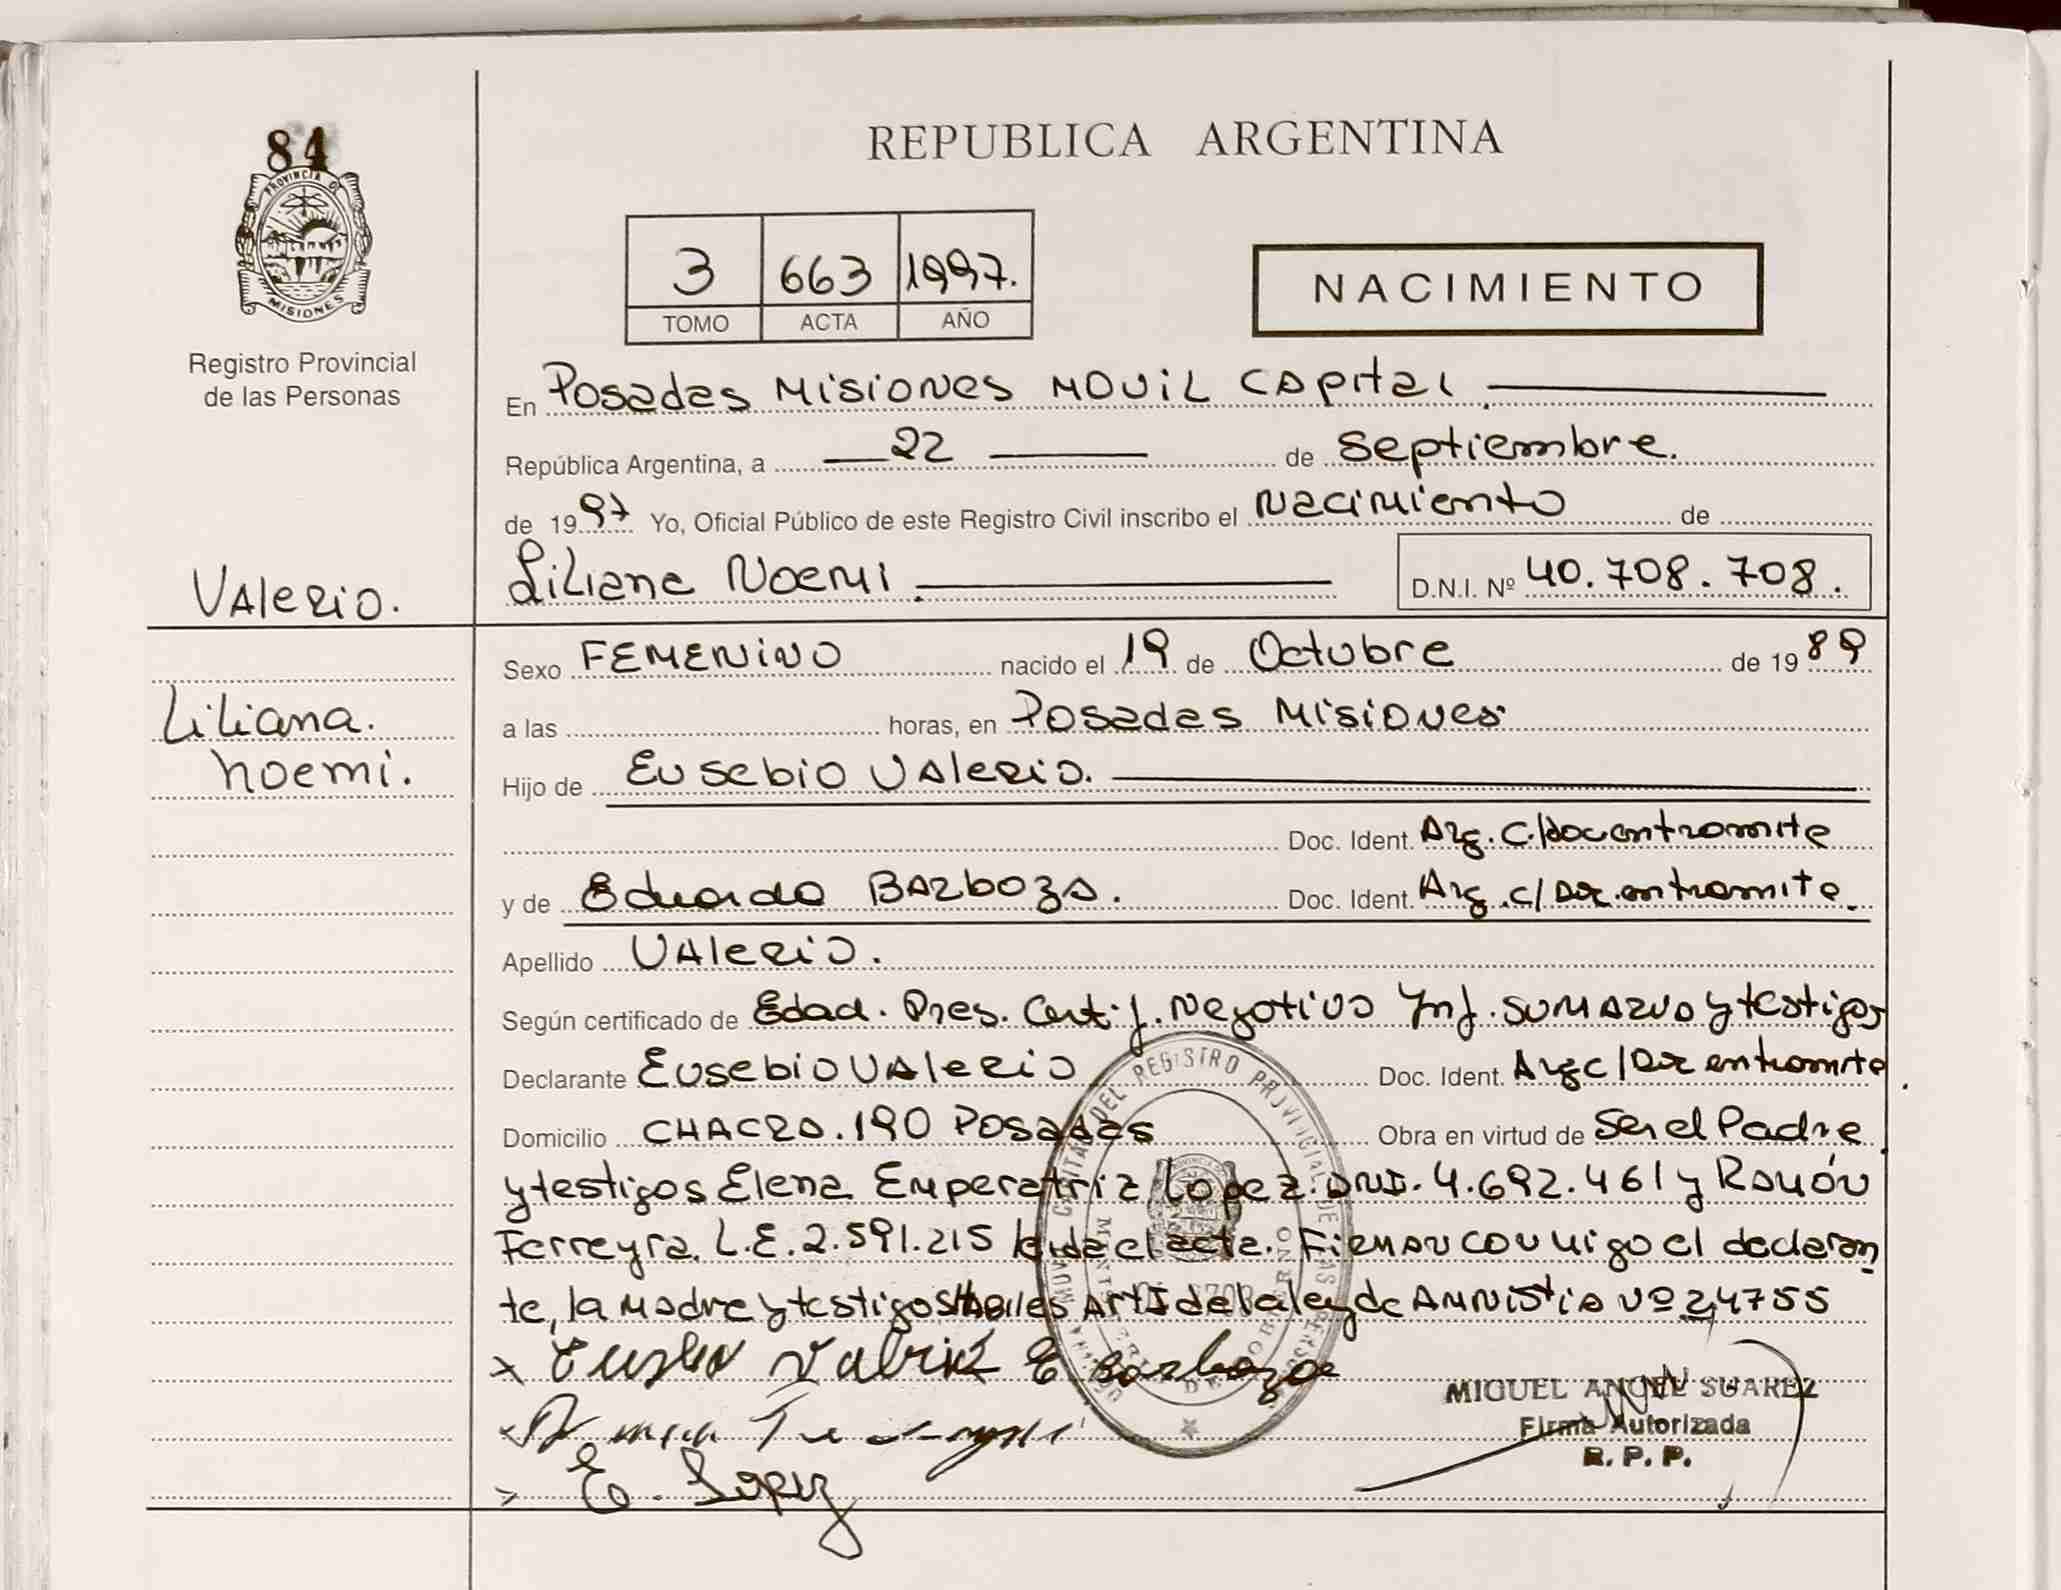 84
PROVINCIA DE
MISIONES
Registro Provincial
de las Personas
Valerio.
Liliana.
Noemi.
REPUBLICA ARGENTINA
3 663 1997.
TOMO ACTA AÑO
NACIMIENTO
En Posadas Misiones Movil Capital
República Argentina, a 22 de Septiembre.
de 1997 Yo, Oficial Público de este Registro Civil inscribo el Nacimiento de
Liliana Noemi. D.N.I. Nº 40.708.708.
Sexo FEMENINO nacido el 19 de Octubre de 1989
a las horas, en Posadas Misiones
Hijo de Eusebio Valerio.
Doc. Ident. Arg. C/doc en tramite
y de Eduarda Barboza. Doc. Ident. Arg. c/Doc. en tramite.
Apellido Valerio.
Según certificado de Edad. Pres. Cert. j. Negativo Ynf. sumario y testigos
Declarante Eusebio Valerio Doc. Ident. Arg c/Doc en tramite.
Domicilio CHACRA. 190 Posadas Obra en virtud de Ser el Padre
y testigos Elena Emperatriz Lopez. DNI. 4.692.461 y Ramón
Ferreyra. L.E. 2.591.215 leida el acta. Firman conmigo el declaran
te, la Madre y testigos Habiles Art 1 de la ley de Amnistia Nº 24755
E Barboza
E. Lopez
MIGUEL ANGEL SUAREZ
Firma Autorizada
R. P. P.